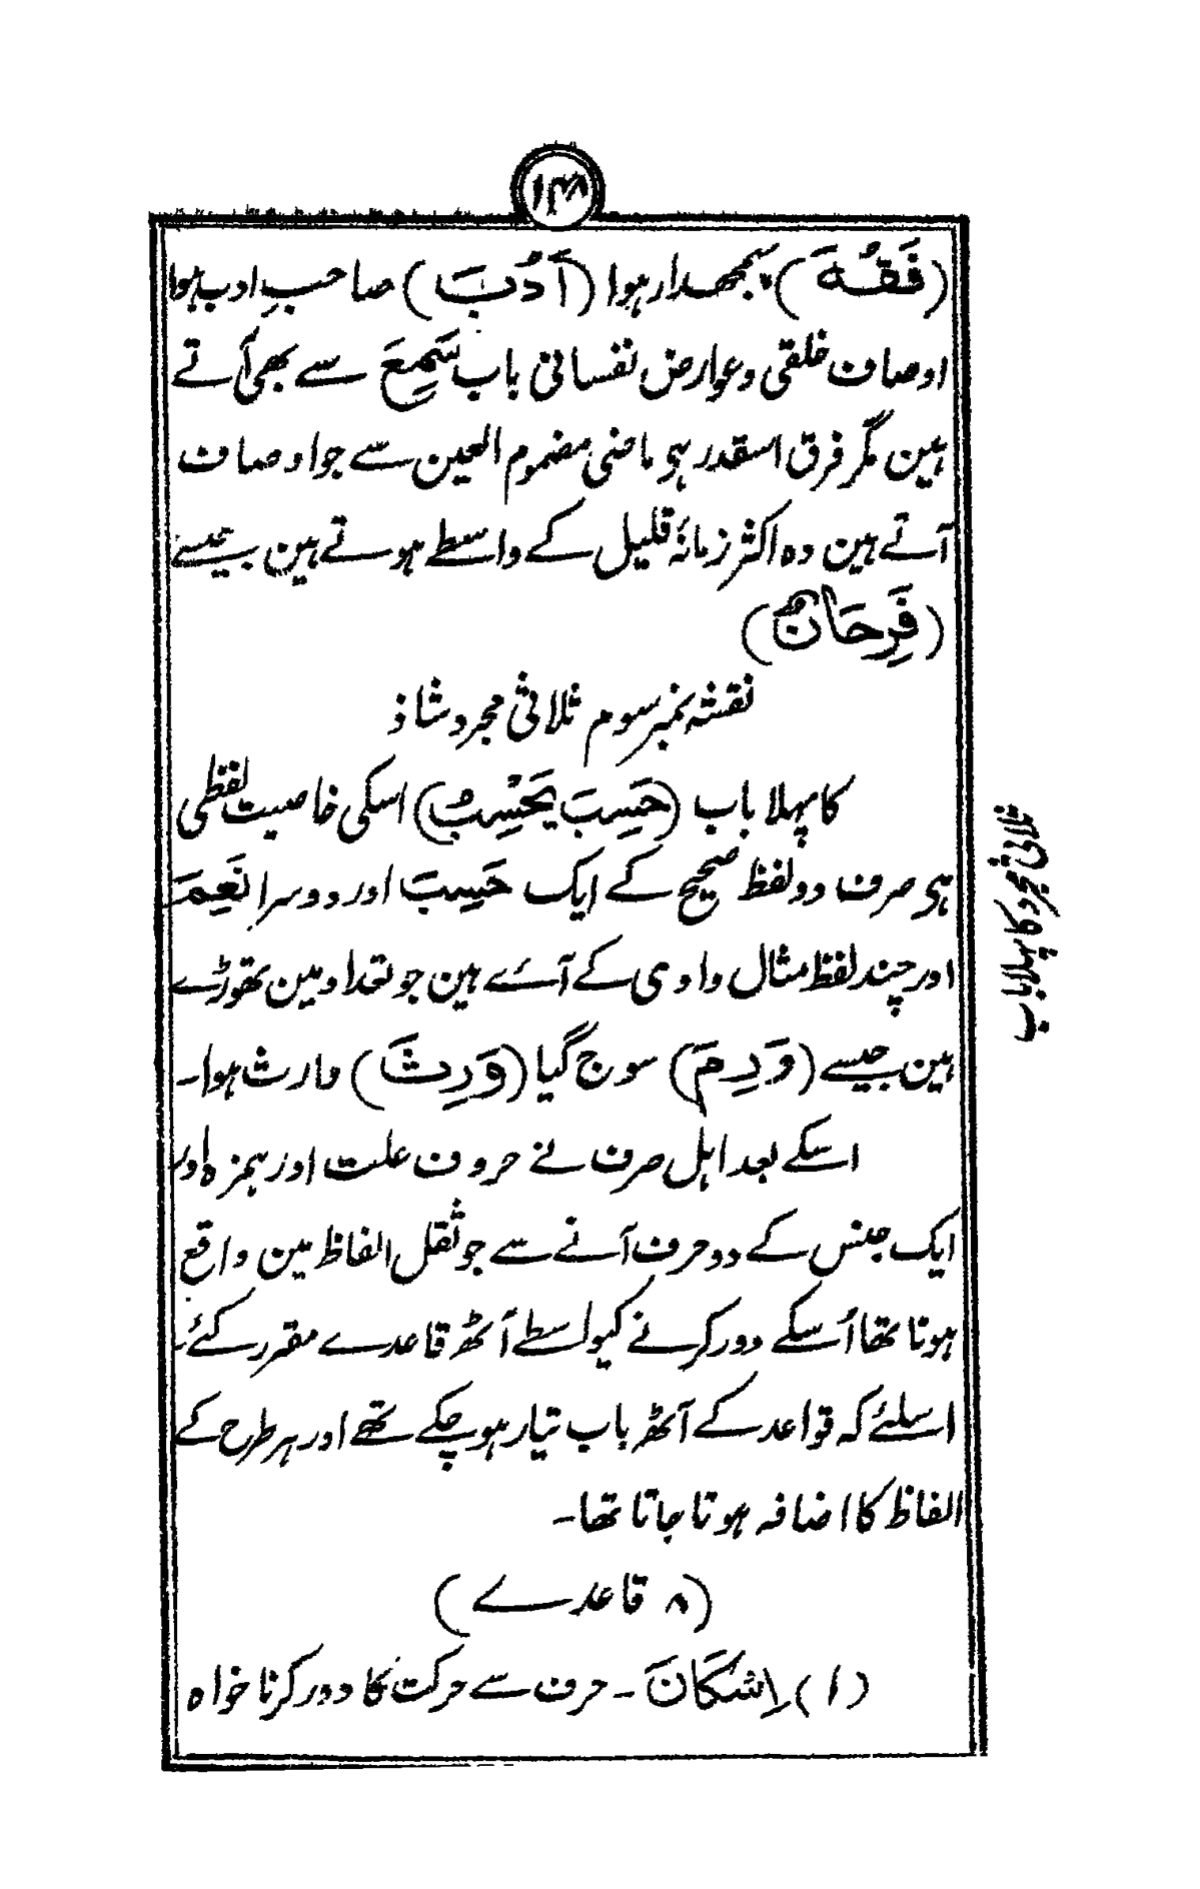 (فَقُہَ) سمجھدار ہوا (اَدُبَ) صاحبِ ادب ہوا
اوصاف خلقی و عوارض نفسانی باب سَمِعَ سے بھی آتے
ہین مگر فرق اسقدر ہی ماضی مضموم العین سے جو اوصاف
آتے ہین وہ اکثر زمانۂ قلیل کے واسطے ہوتے ہین جیسے
(فَرِحَانٌ)
نقشہ نمبر سوم ثلاثی مجرد شاذ
کا پہلا باب (حَسِبَ یَحْسِبُ) اسکی خاصیت لفظی
ہی صرف دو لفظ صحیح کے ایک حَسِبَ اور دوسرا نَعِمَ
اور چند لفظ مثال واوی کے آئے ہین جو تعداد مین تھوڑے
ہین جیسے (وَرِمَ) سوج گیا (وَرِثَ) وارث ہوا۔
اسکے بعد اہل صرف نے حروف علت اور ہمزہ اور
ایک جنس کے دو حرف آنے سے جو ثقل الفاظ مین واقع
ہوتا تھا اُسکے دور کرنے کیواسطے آٹھ قاعدے مقرر کئے۔
اسلئے کہ قواعد کے آٹھ باب تیار ہو چکے تھے اور ہر طرح کے
الفاظ کا اضافہ ہوتا جاتا تھا۔
(۸ قاعدے)
(۱) اِسْکَانَ۔ حرف سے حرکت کا دور کرنا خواہ
ثلاثی مجرد کا پہلا باب